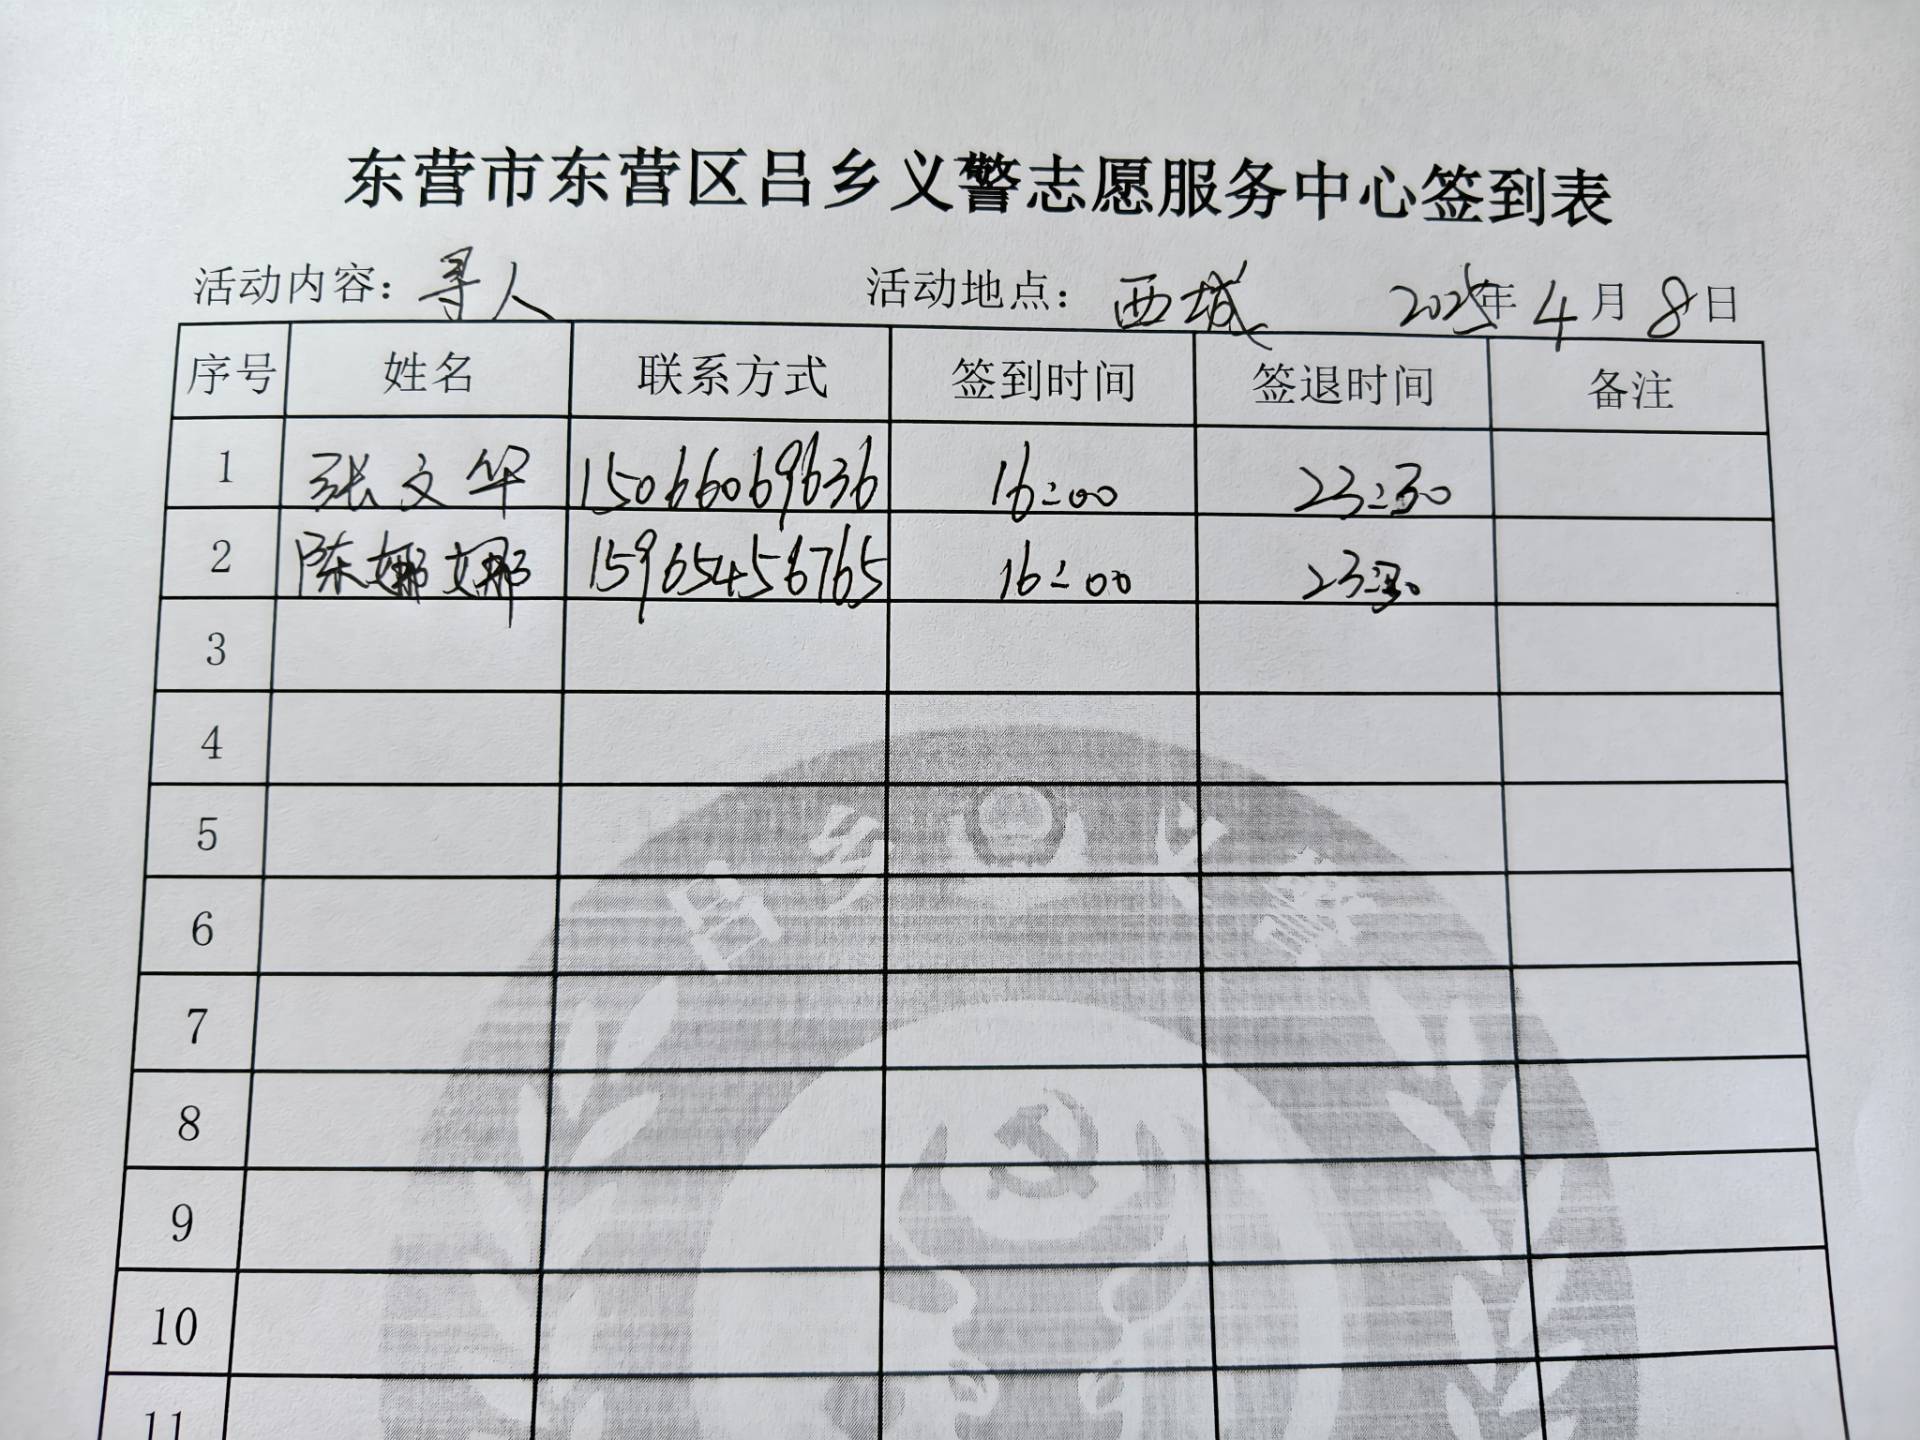 东营市东营区吕乡义警志愿服务中心签到表
活动内容：寻人 活动地点：西城 2025年4月8日
序号 姓名 联系方式 签到时间 签退时间 备注
1 张文华 15066069636 16:00 23:30
2 陈娜娜 15965456765 16:00 23:30
3
4
5
6
7
8
9
10
11
吕乡义警